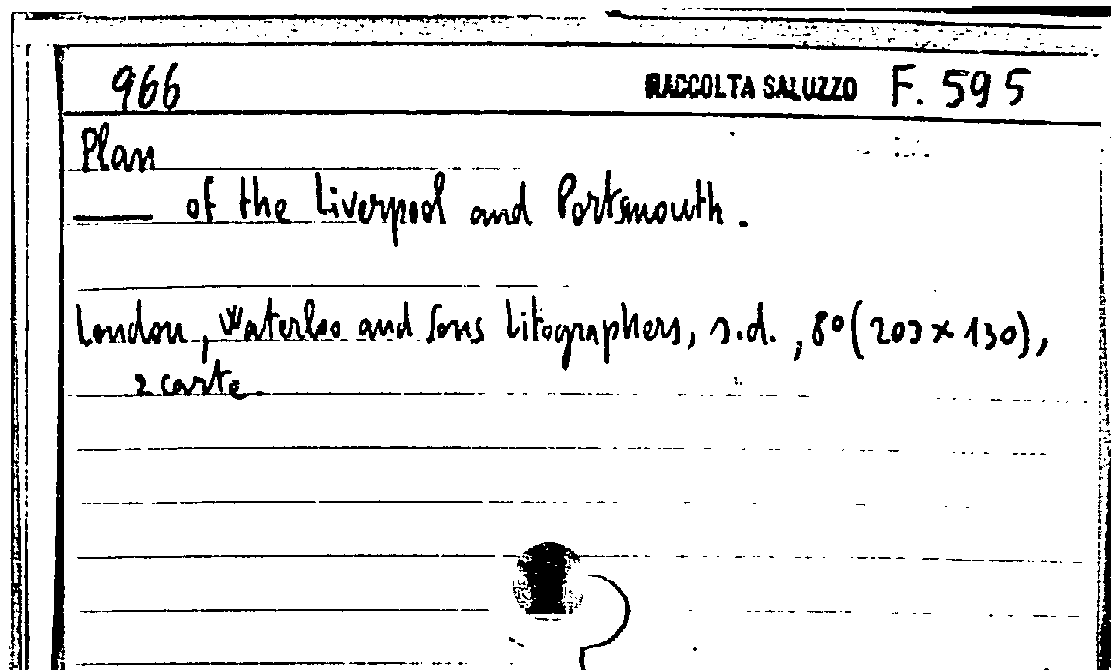 966 RACCOLTA SALUZZO F. 595
Plan
—— of the Liverpool and Portsmouth.
London, Waterloo and Sons Litographers, s.d., 8° (203 x 130),
2 carte.